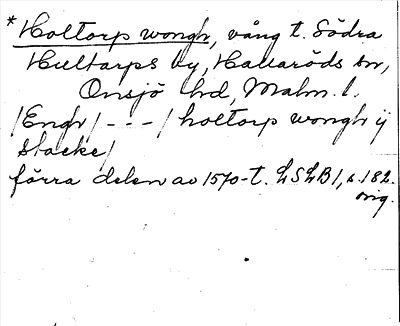 *Holtorp wongh, vång t. Södra
Hultarps by, Hallaröds sn,
Onsjö hd, Malm. l.
/Engh/ - - - / holtorp wongh ij
stacke/
förra delen av 1570-t. LSLB1, s. 182.
orig.